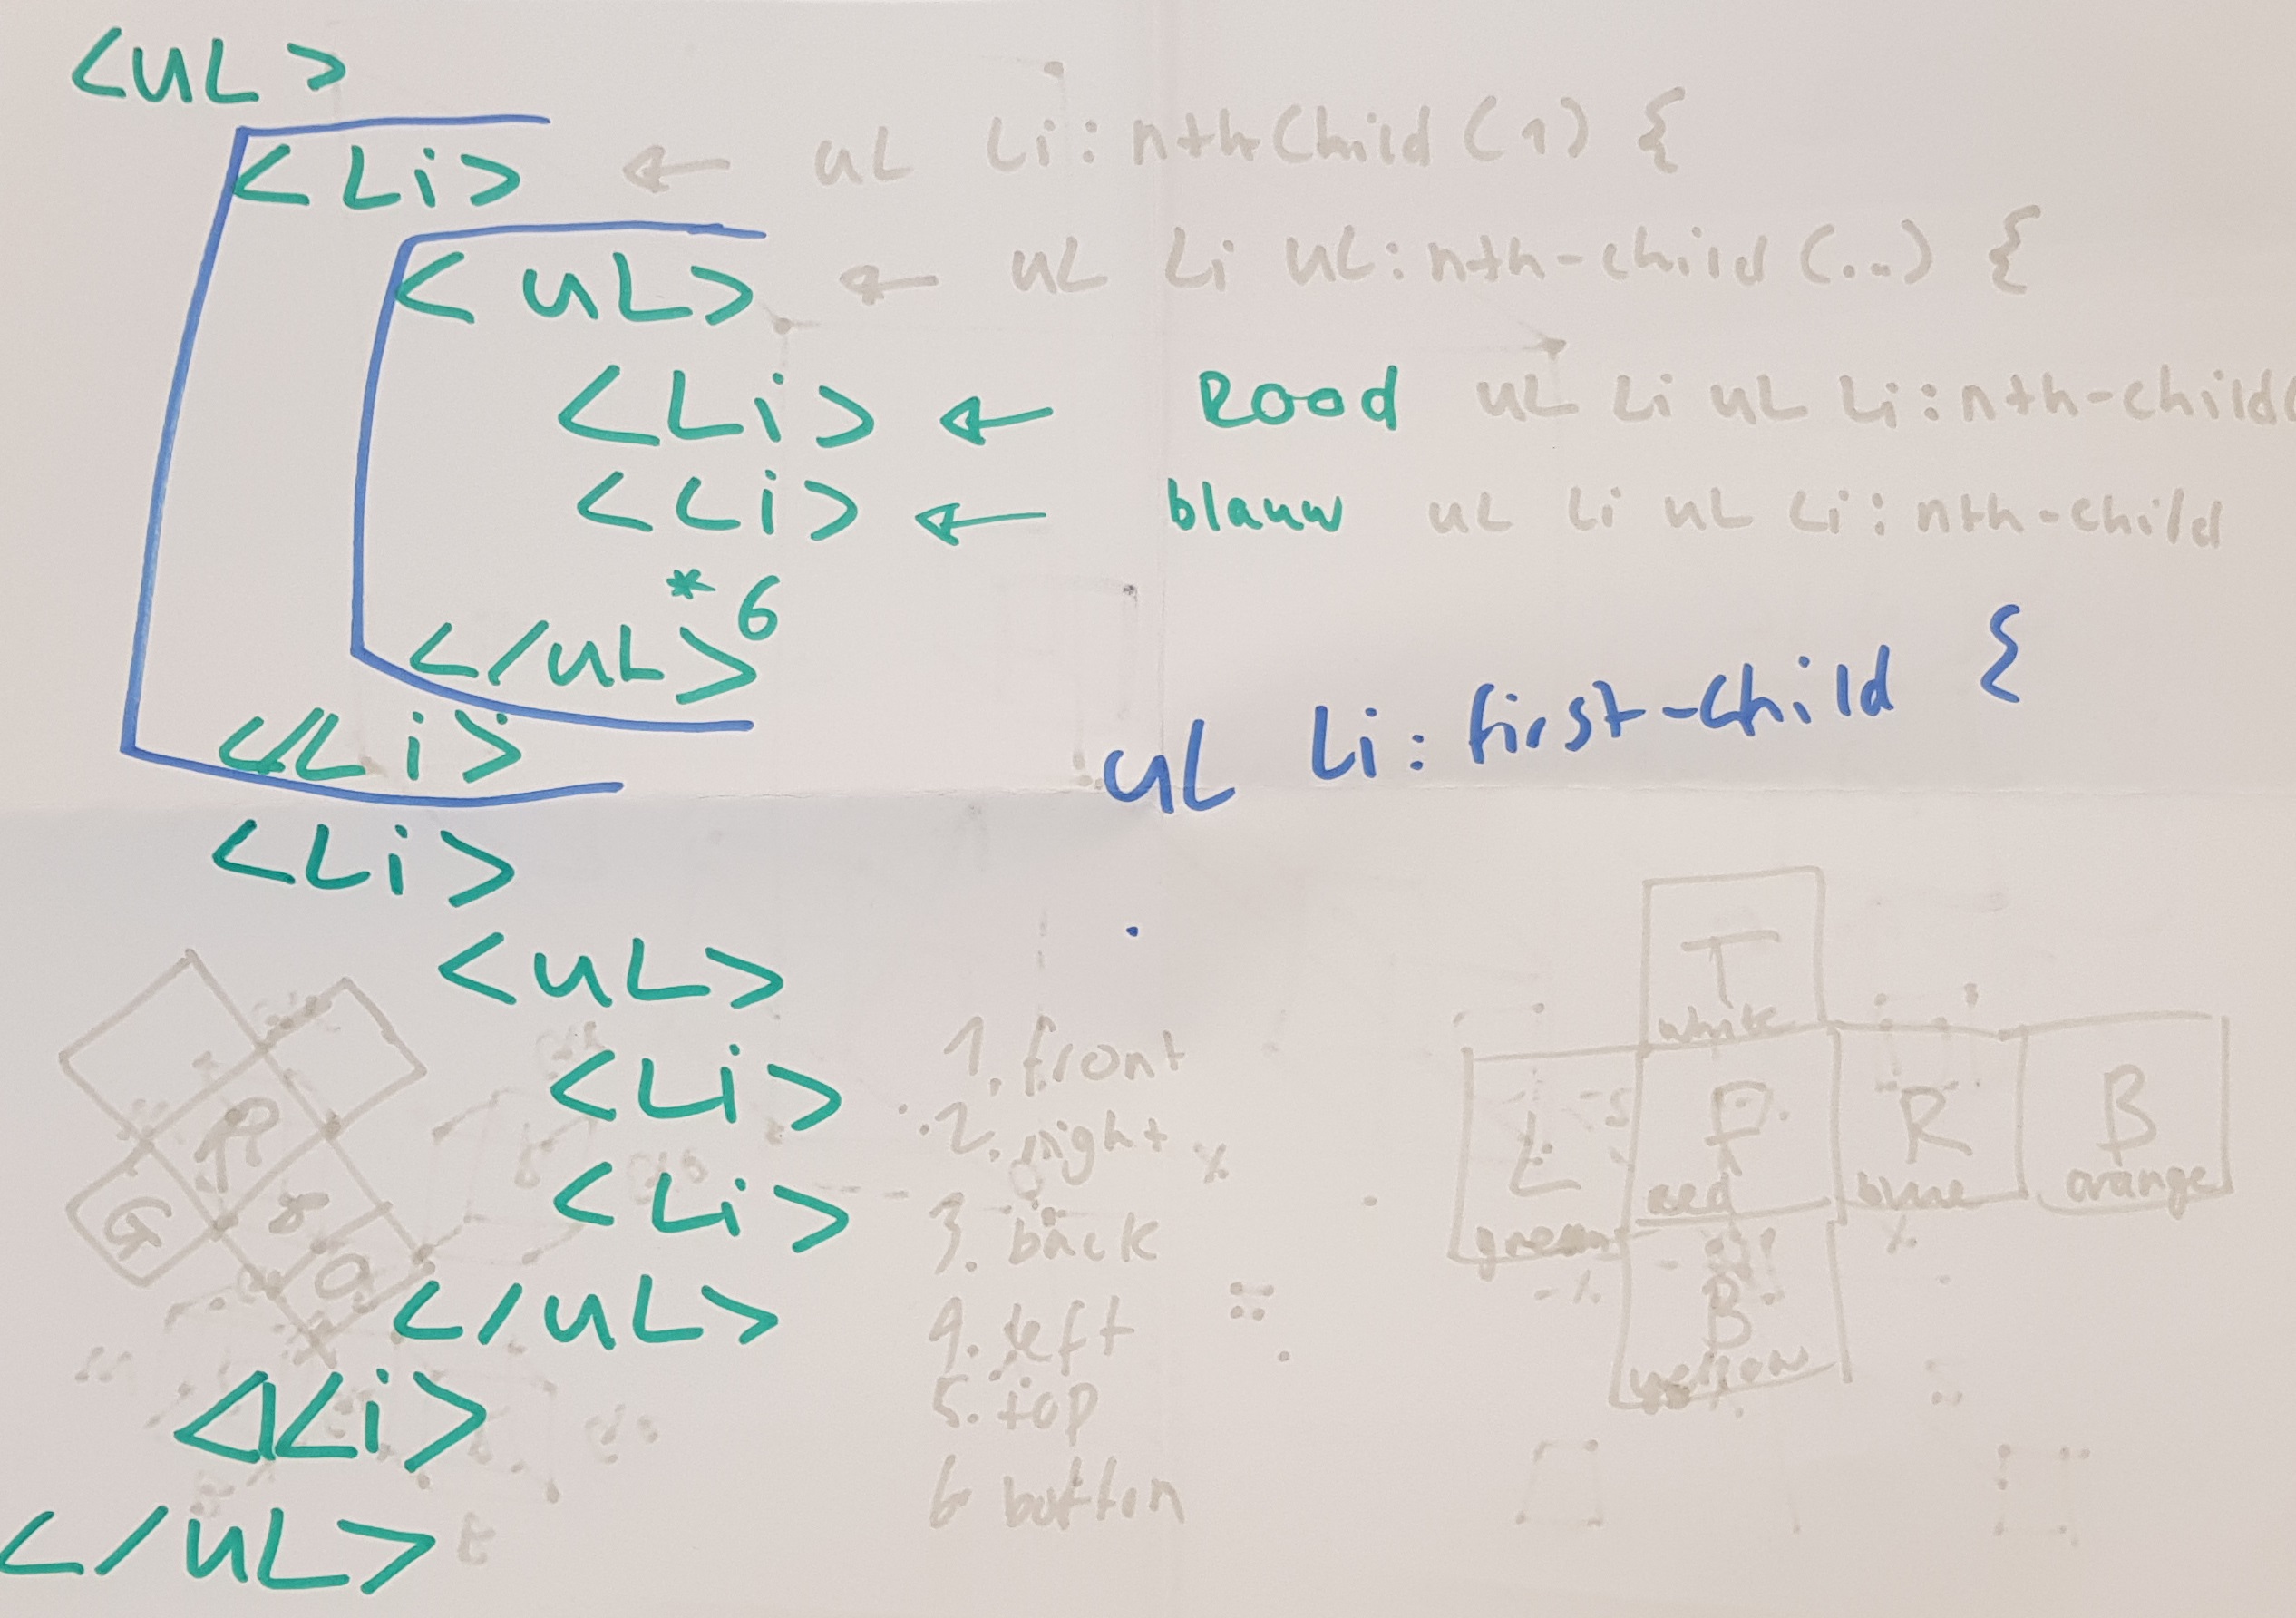 <uL>
<Li> ← uL Li:nthChild(1) {
<uL> ← uL Li uL:nth-child(...) {
<Li> ← Rood uL Li uL Li:nth-child(
<Li> ← blauw uL Li uL Li:nth-child
*6
</uL>
uL Li:first-child {
</Li>
<Li>
<uL>
<Li>
<Li>
</uL>
</Li>
</uL>
1. front
2. right
3. back
4. left
5. top
6 bottom
T
white
L
green
F
red
R
blue
B
orange
B
yellow
R
G
O